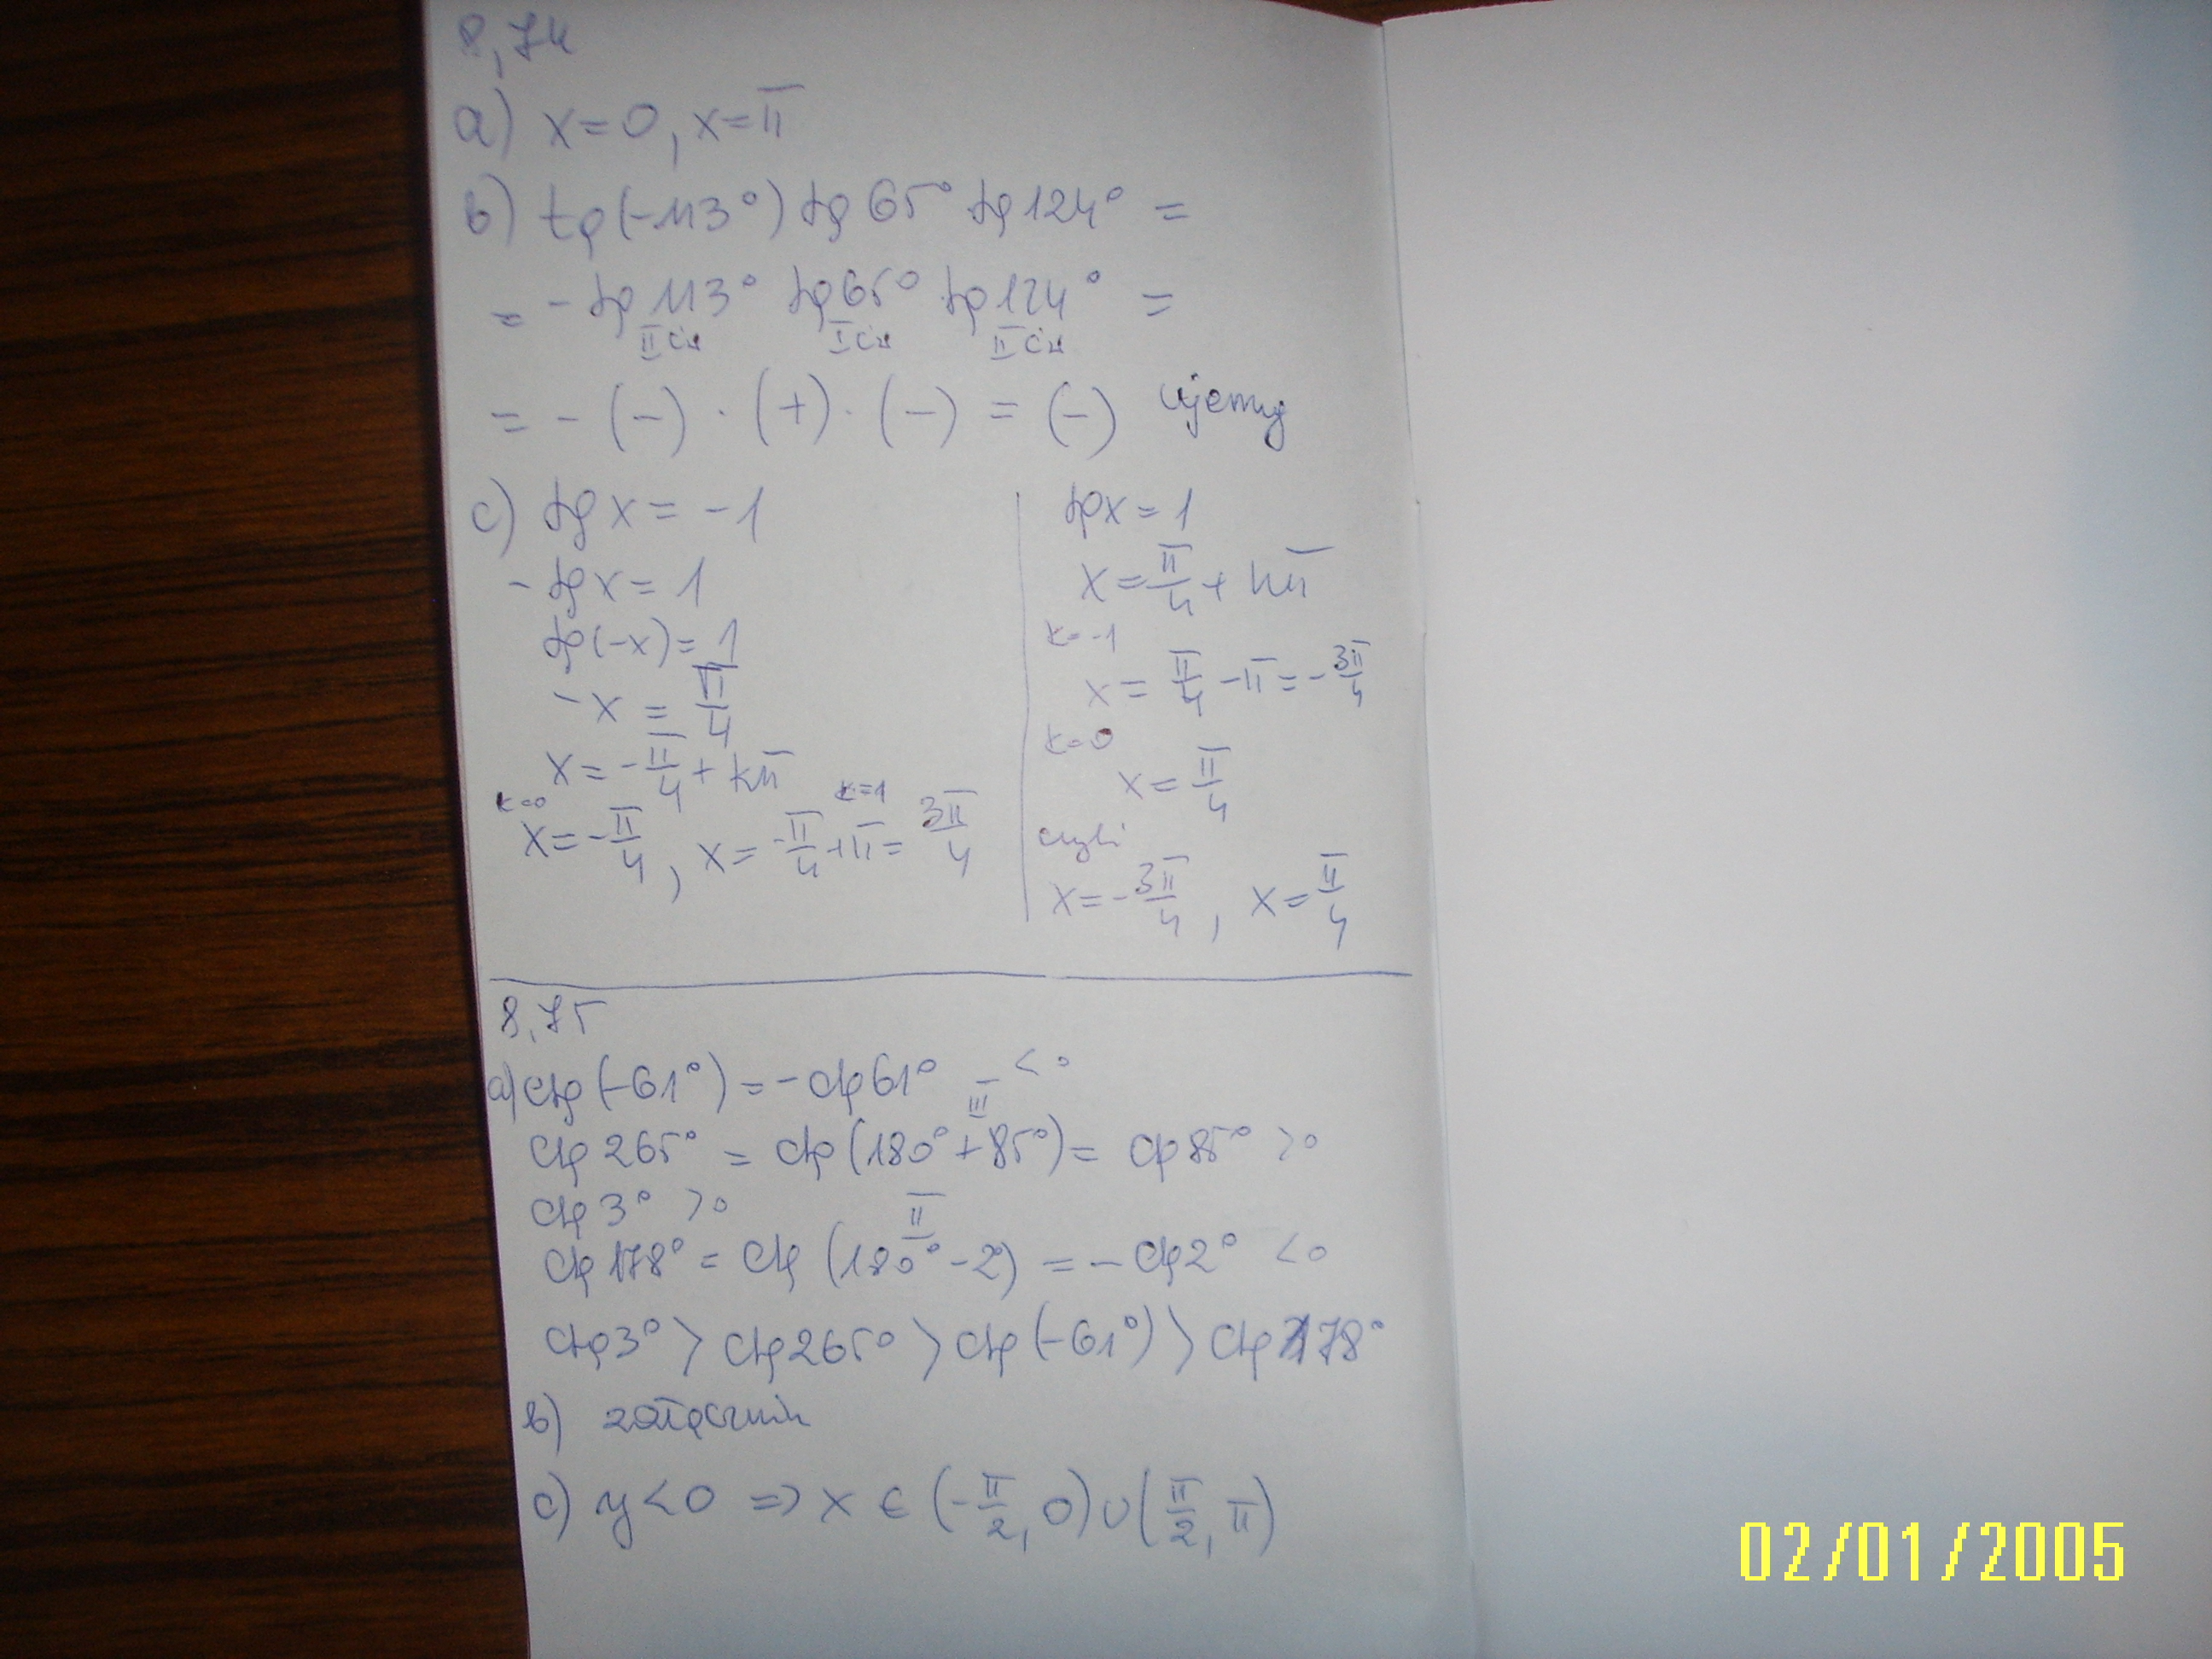 8,74
a) x=0, x=π
b) tg(-113°) tg 65° tg 124° =
= - tg 113° tg 65° tg 124° =
II ćw I ćw II ćw
= - (-) · (+) · (-) = (-) ujemny
c) tg x = -1
- tg x = 1
tg(-x) = 1
-x = π/4
x = -π/4 + kπ
k=0 k=1
x = -π/4, x = -π/4 + π = 3π/4
tg x = 1
x = π/4 + kπ
k=-1
x = π/4 - π = -3π/4
k=0
x = π/4
czyli
x = -3π/4, x = π/4
8,75
a) ctg(-61°) = - ctg 61° < 0
III
ctg 265° = ctg(180° + 85°) = ctg 85° > 0
ctg 3° > 0
II
ctg 178° = ctg (180° - 2°) = - ctg 2° < 0
ctg 3° > ctg 265° > ctg (-61°) > ctg 178°
b) załącznik
c) y < 0 => x ∈ (-π/2, 0) ∪ (π/2, π)
02/01/2005